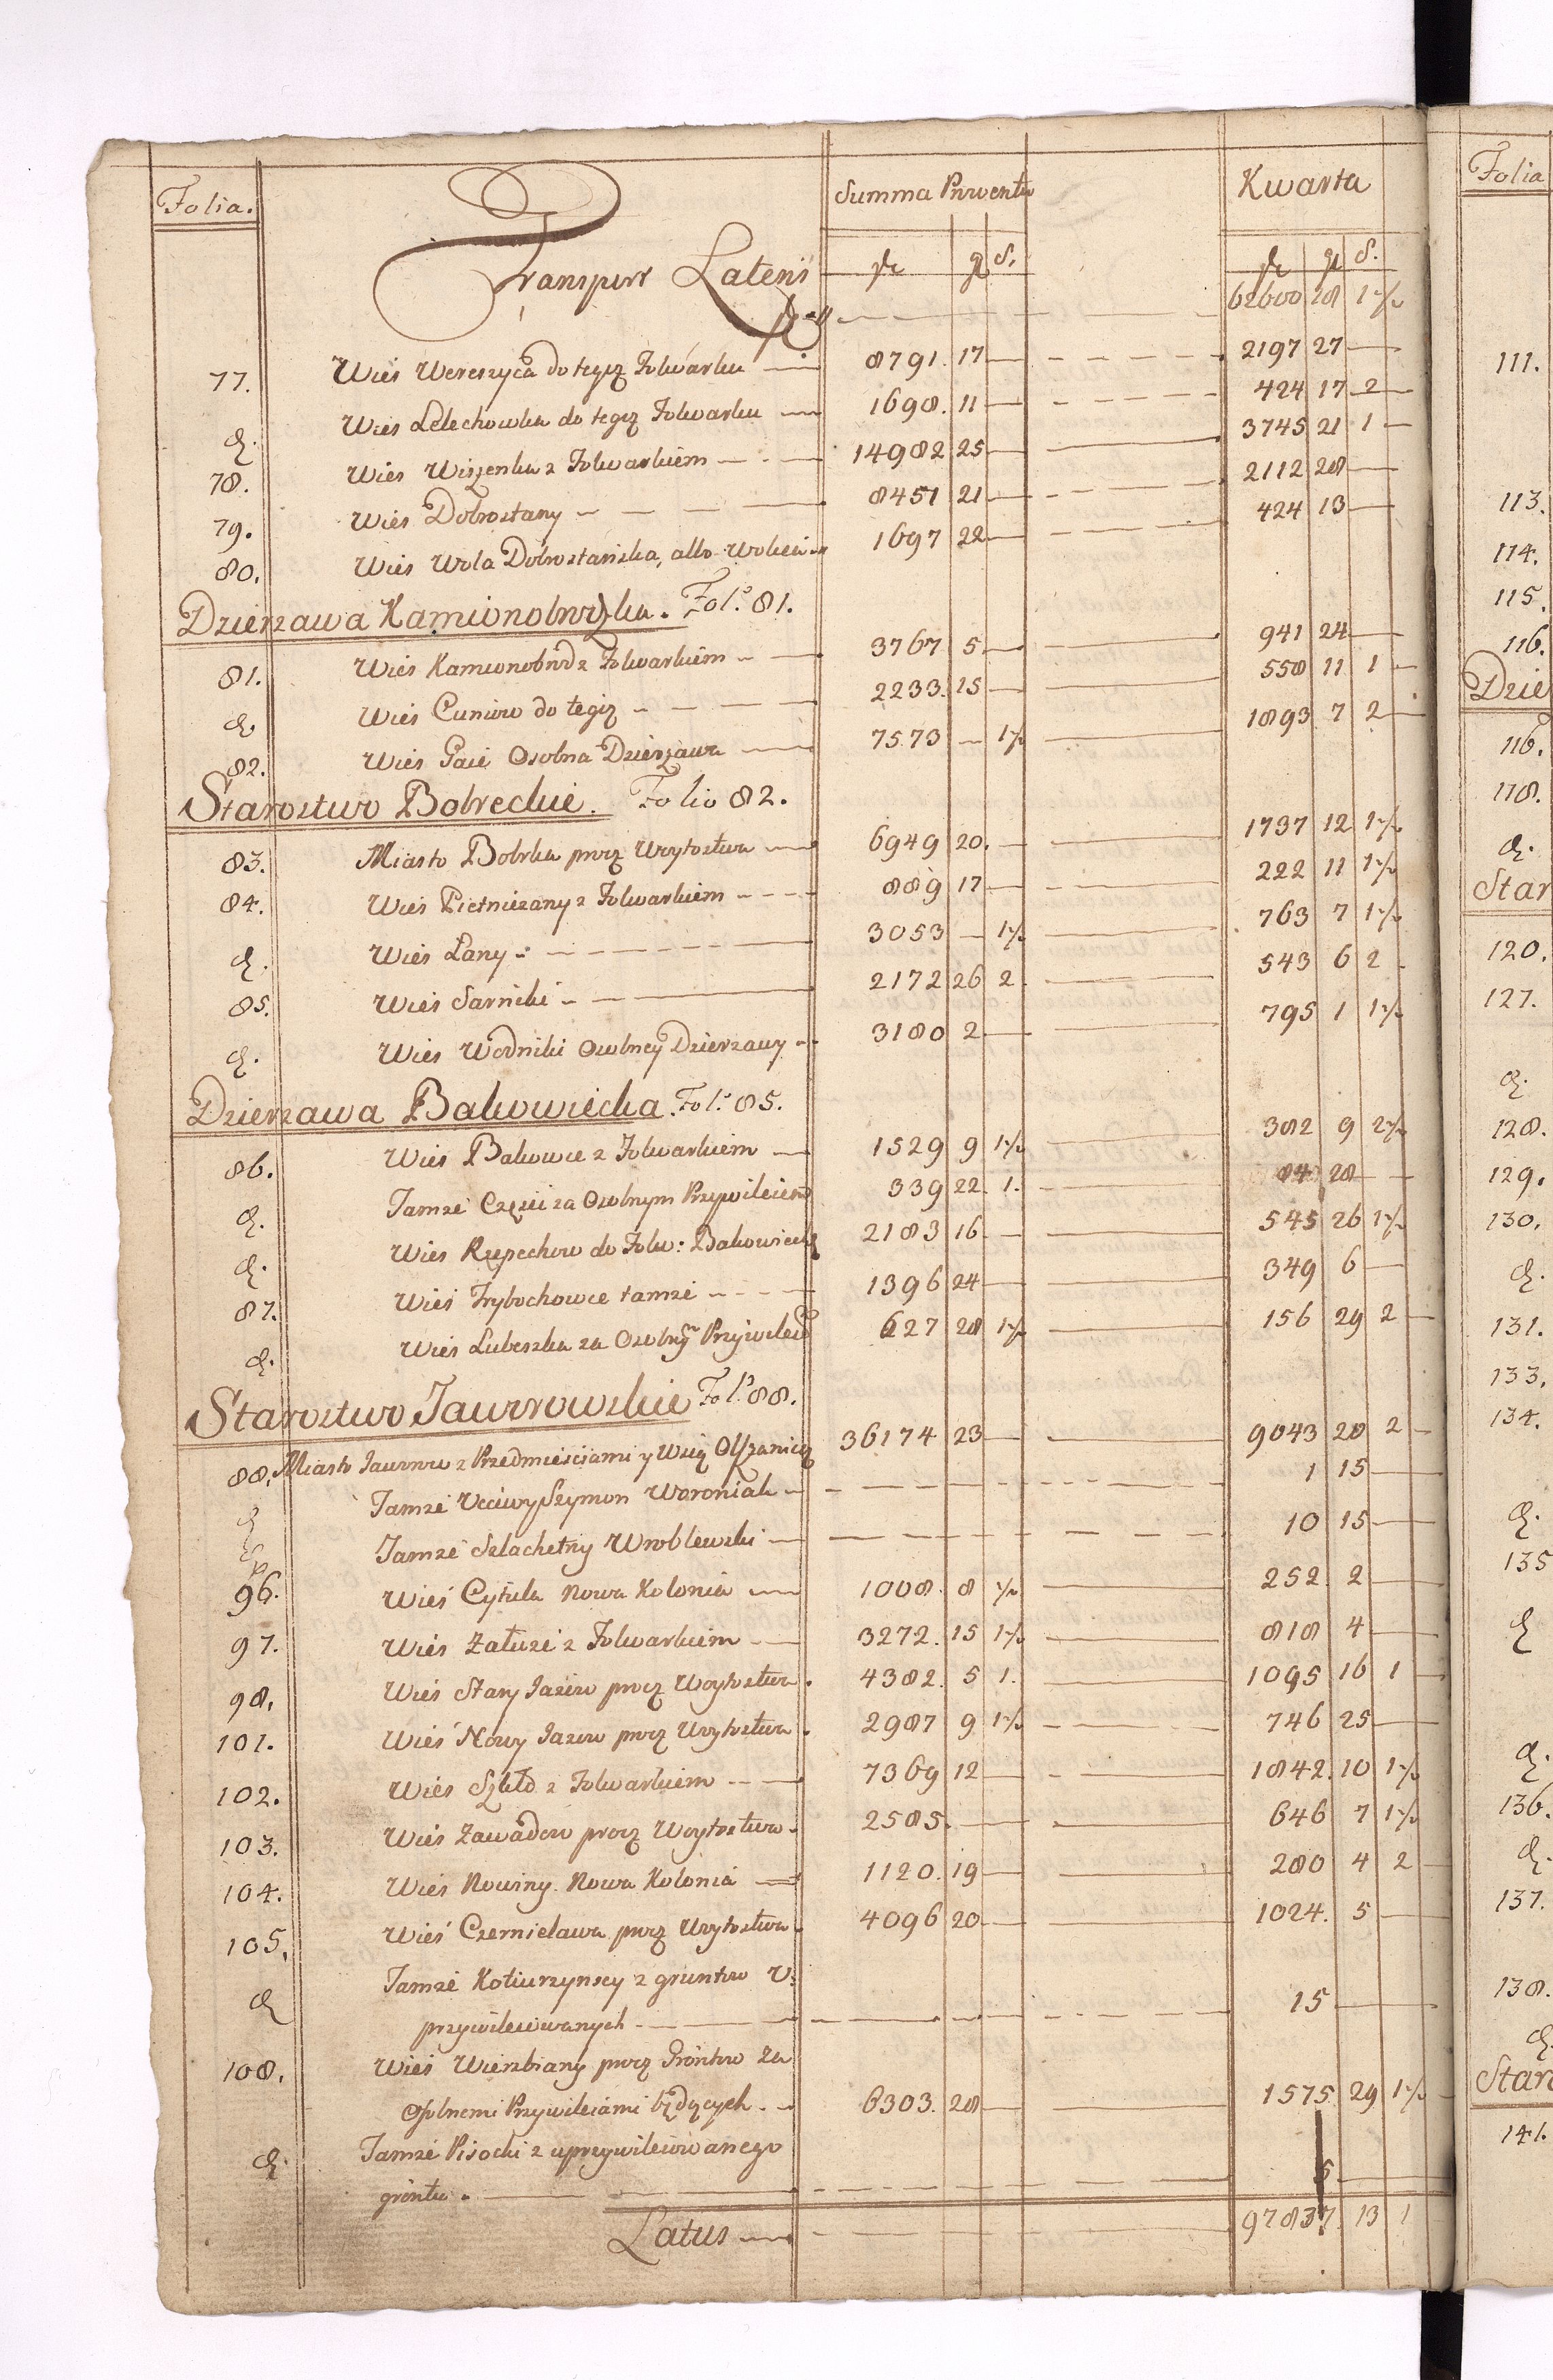 Folia. Summa Prowentu Kwarta
Transport Lateris zł gr d. zł gr d.
62600 28 1½
77. Wieś Wereszyca do tegoż Folwarku 8791. 17 2197 27
d. Wieś Lelechowka do tegoż Folwarku 1698. 11 424 17 2
78. Wieś Wiszenka z Folwarkiem 14982 25 3745 21 1
79. Wieś Dobrostany 8451 21 2112 28
80. Wieś Wola Dobrostańska, albo 1697 22 424 13
Dzierzawa Kamionobrodzka. Fol.o 81.
81. Wieś Kamionobrod z Folwarkiem 3767 5 941 24
d. Wieś Cuniow do tegoż 2233. 15 558 11 1
82. Wieś Gaie Osobna Dzierzawa 7573 — 1½ 1893 7 2
Starostwo Bobreckie. Folio 82.
83. Miasto Bobrka procz Woytostwa 6949 20. 1737 12 1½
84. Wieś Pietniczany z Folwarkiem 889 17 222 11 1½
d. Wieś Łany 3053 — 1½ 763 7 1½
85. Wieś Sarniki 2172 26 2 543 6 2
d. Wieś Wodniki Osobney Dzierzawy 3180 2 795 1 1½
Dzierzawa Bakowiecka. Fol.o 85.
86. Wieś Bakowce z Folwarkiem 1529 9 1½ 382 9 2½
d. Tamże Częśći za Osobnym Przywileiem 339 22. 1. 84 28
d. Wieś Rzepechow do Folw: Bakowieck 2183 16. 545 26 1½
87. Wieś Trybochowce tamże 1396 24 349 6
d. Wieś Lubeszka za Osobnym Przywilem 627 28 1½ 156 29 2
Starostwo Jaworowskie Fol.o 88.
88. Miasto Jaworow z Przedmieściami y Wsią Olszanicą 36174 23 9043 20 2
d. Tamże Uczciwy Szymon Woroniak 1 15
Tamże Szlachetny Wroblewski 10 15
96. Wieś Cytula Nowa Kolonia 1008. 8 ½ 252. 2
97. Wieś Załuże z Folwarkiem 3272. 15 1½ 818 4
98. Wieś Stary Jazow procz Woytostwa. 4382. 5 1. 1095 16 1
101. Wieś Nowy Jazow procz Woytostwa. 2987 9 1½ 746 25
102. Wieś Szkło z Folwarkiem 7369 12 1842. 10 1½
103. Wieś Zawadow procz Woytostwa. 2585. 646 7 1½
104. Wieś Nowiny. Nowa Kolonia 1120. 19 280 4 2
105. Wieś Czernielawa procz Woytostwa. 4096 20 1024. 5
d Tamże Kotiurzynscy z gruntow U:
przywileiowanych 15
108. Wieś Wierzbiany procz Grontow za
Osobnemi Przywileiami będących. 6303. 28 1575. 29 1½
d. Tamże Pisocki z uprzywileiowanego
grontu. 5
Latus 97837. 13 1
Folia
111.
113.
114.
115.
116.
Dzie
116.
118.
d.
Star
120.
127.
d.
128.
129.
130.
d.
131.
133.
134.
d.
135
d
d.
136.
d.
137.
138.
d.
Star
141.